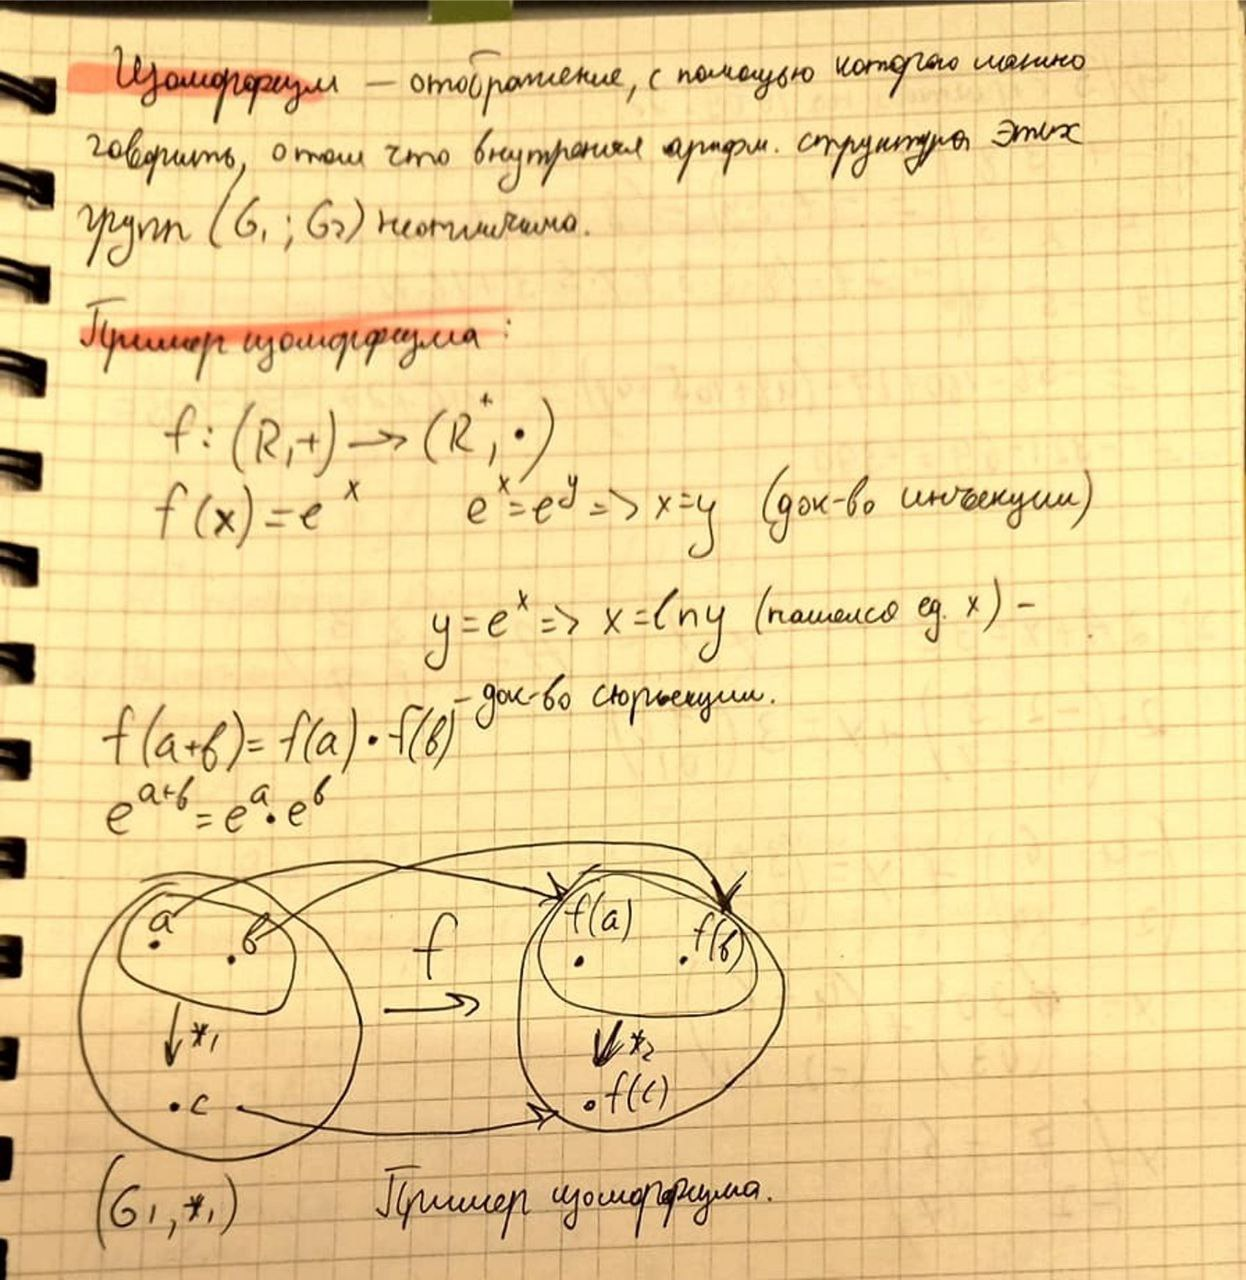 Изоморфизм — отображение, с помощью которого можно
говорить, о том что внутренняя арифм. структура этих
групп (G₁ ; G₂) неотличима.
Пример изоморфизма :
f : (R,+) → (R⁺, •)
f(x) = eˣ eˣ = eʸ => x=y (док-во инъекции)
y = eˣ => x = lny (нашелся ед. x) –
– док-во сюръекции.
f(a+b) = f(a) • f(b)
eᵃ⁺ᵇ = eᵃ • eᵇ
a b f f(a) f(b)
*₁ *₂
c f(c)
(G₁, *₁) Пример изоморфизма.